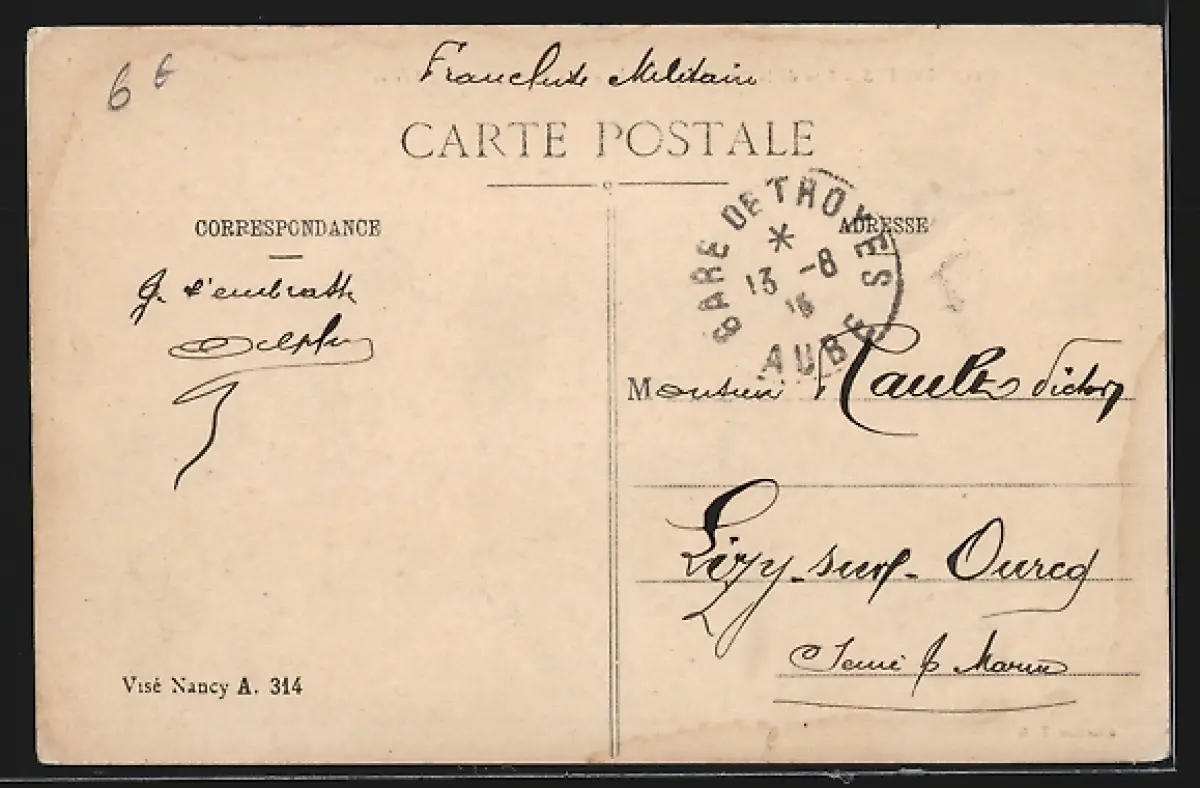 6 €
Franchise Militaire
CARTE POSTALE
GARE DE TROYES
*
13 -8
AUBE
CORRESPONDANCE
ADRESSE
Je t'embrasse
Monsieur Victor
Lizy-sur-Ourcq
Seine & Marne
Visé Nancy A. 314